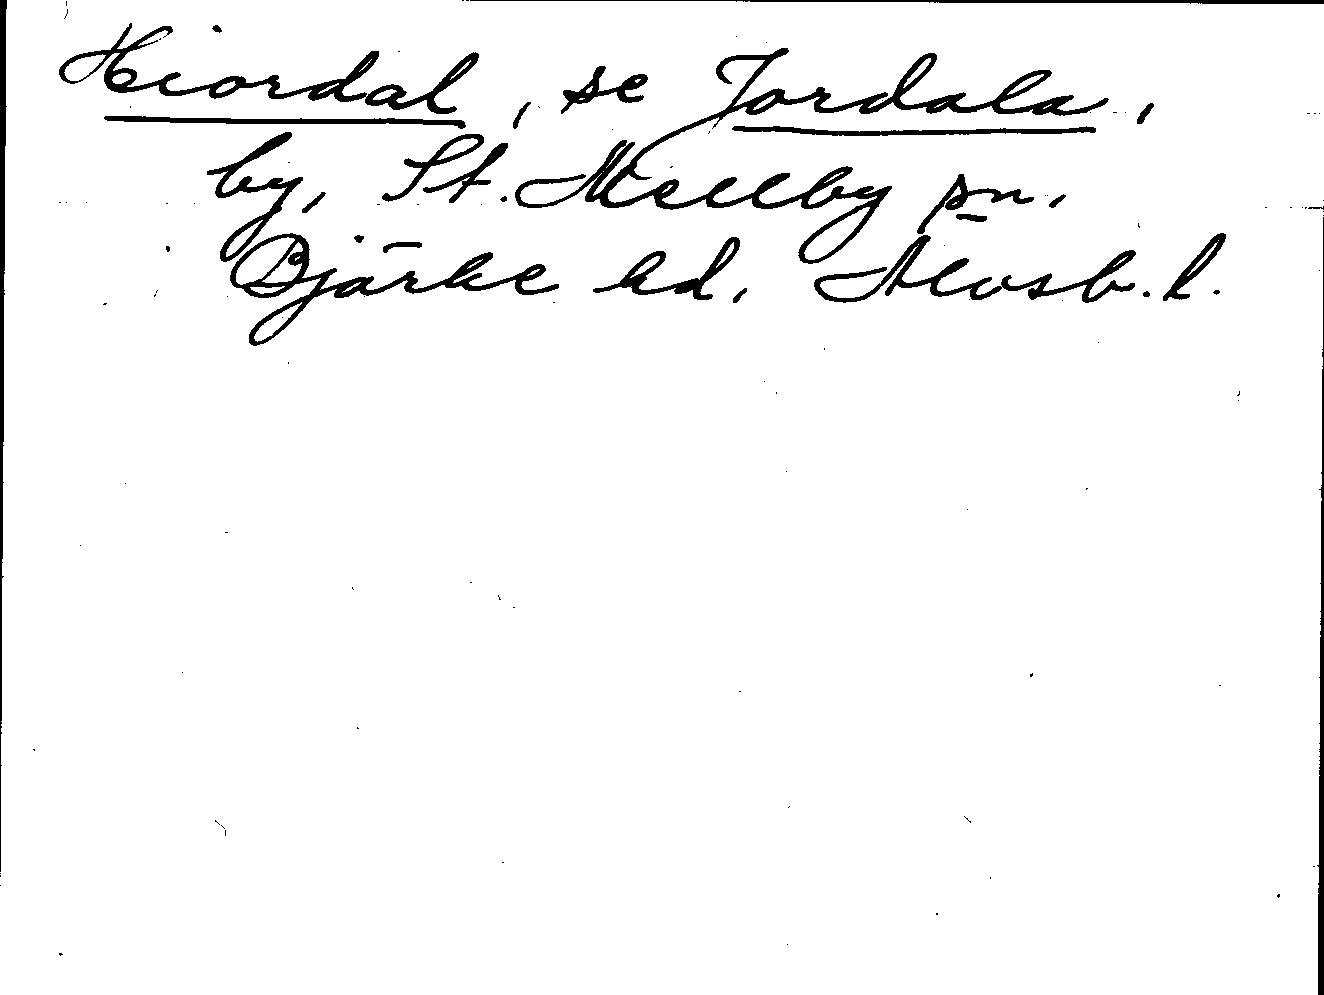 Hiordal, se Jordala,
by, St. Mellby sn,
Bjärke hd, Älvsb. l.